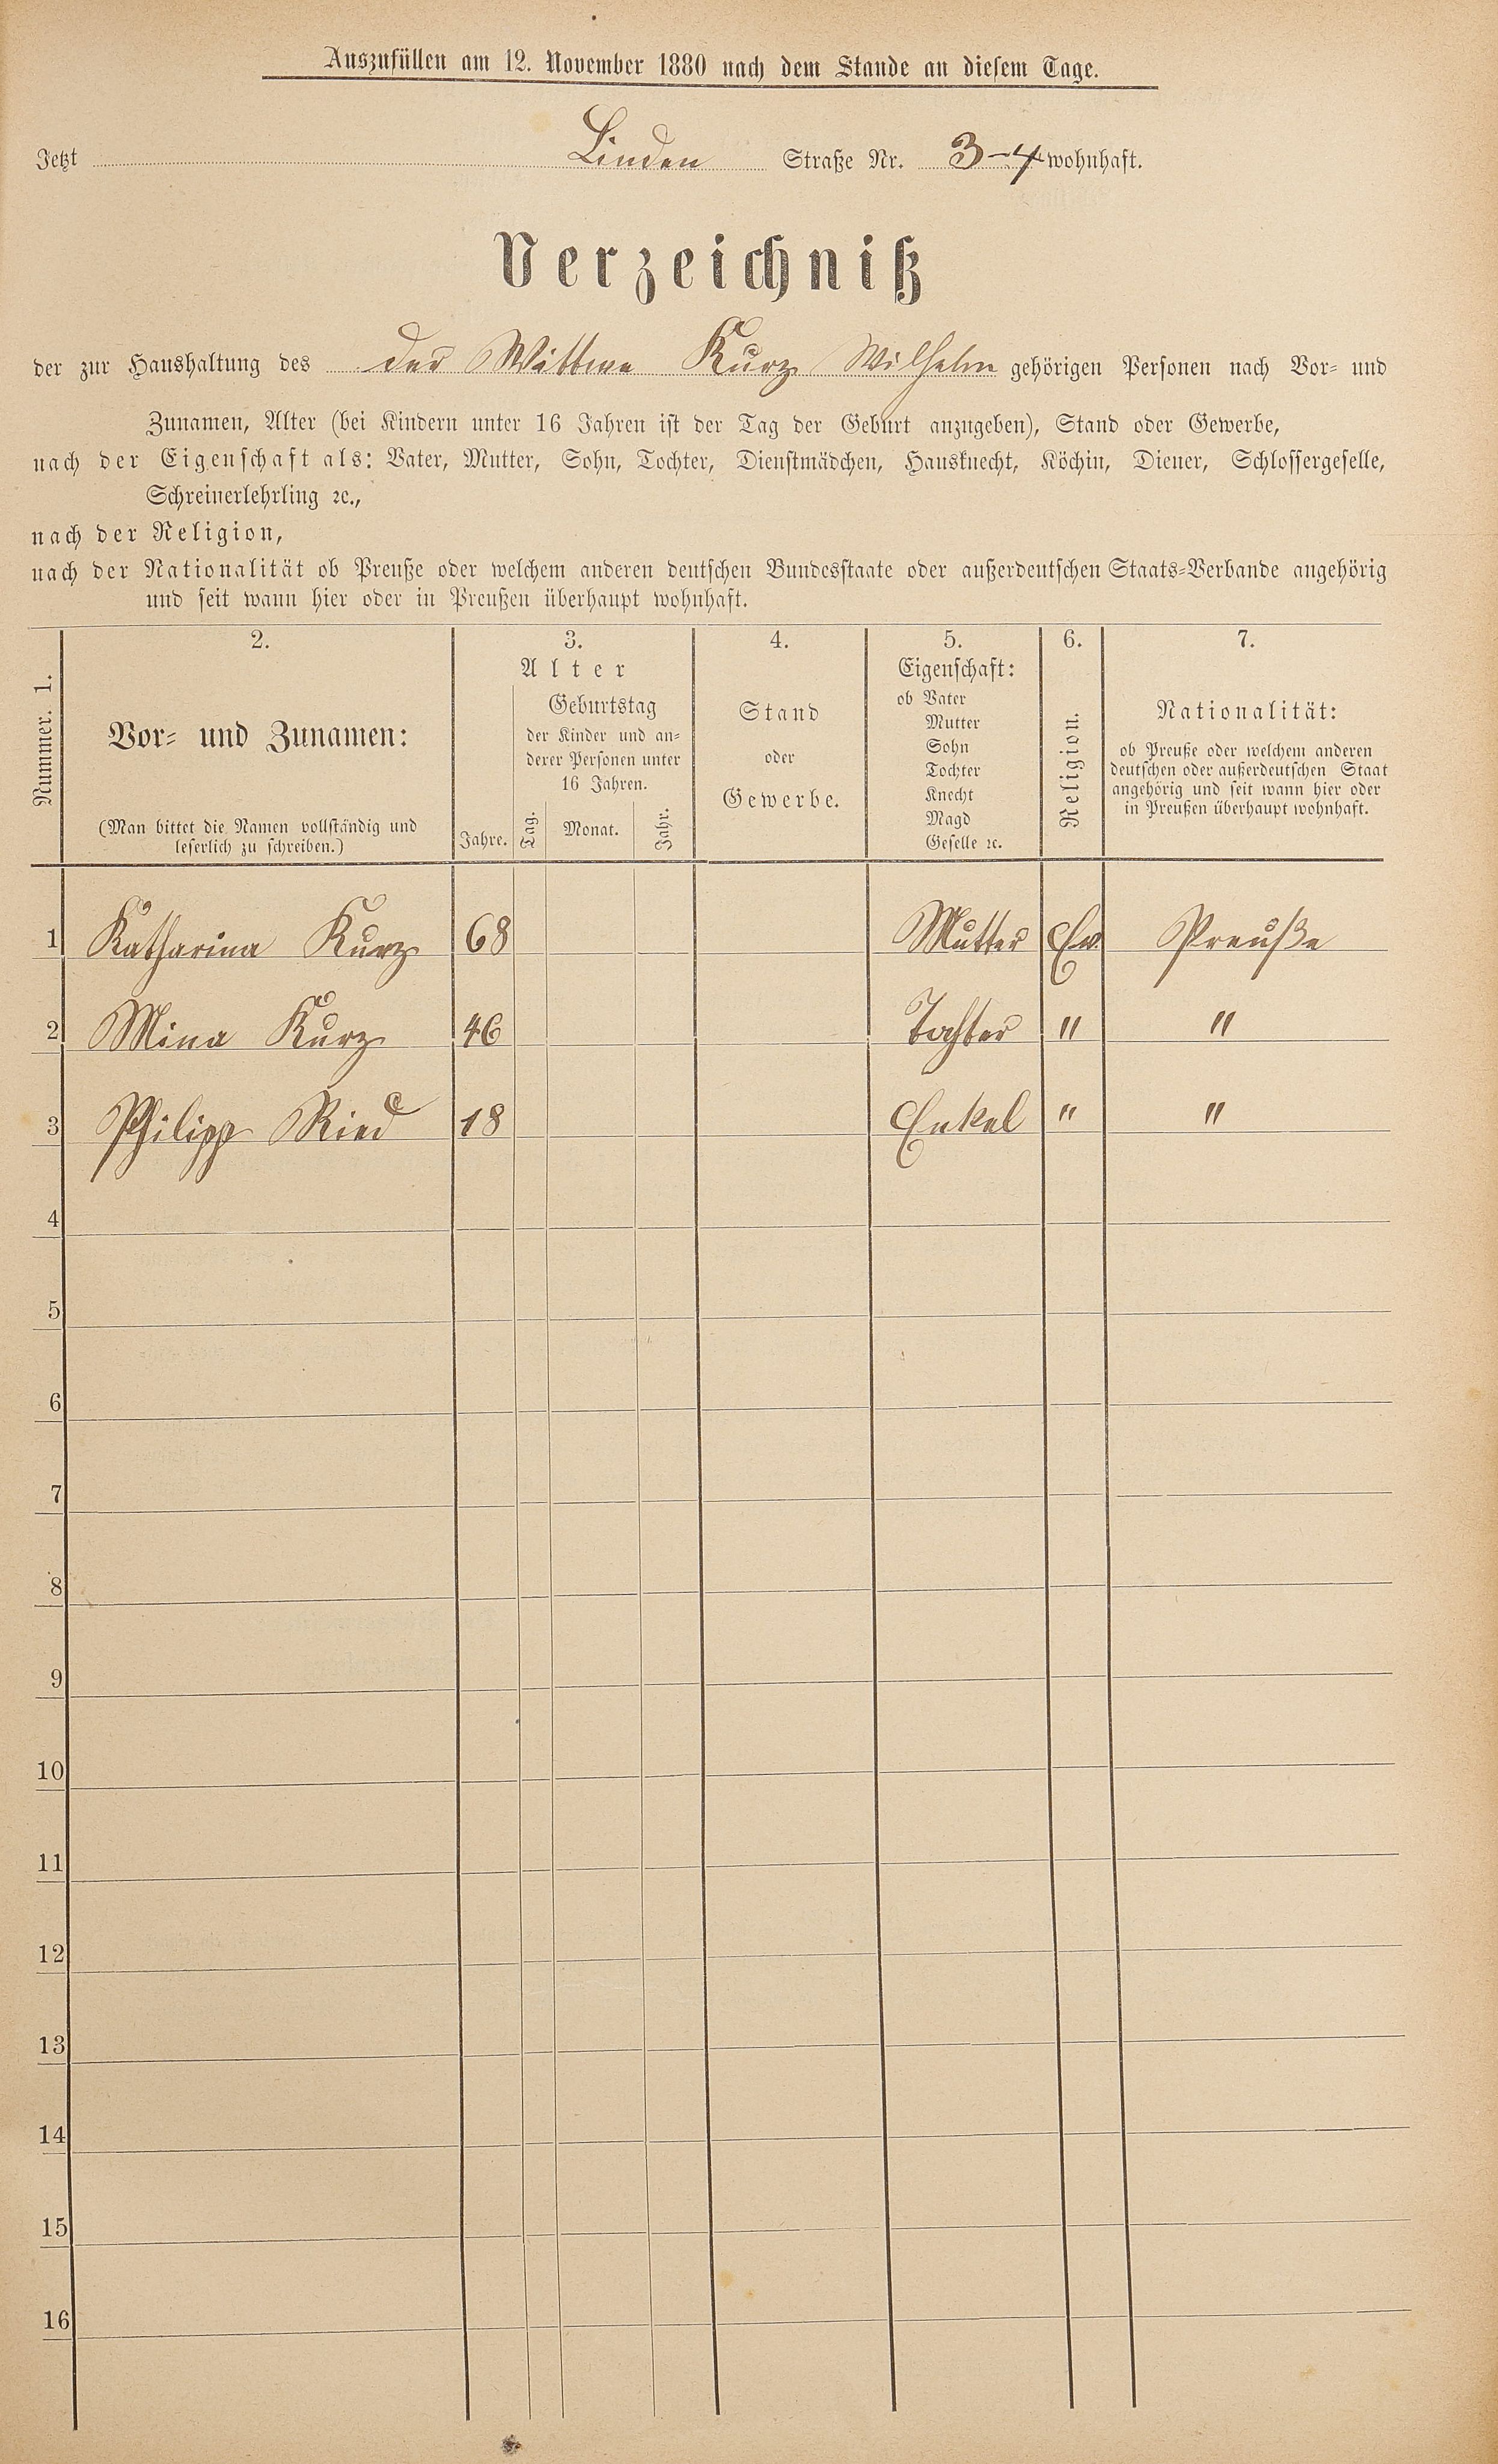 Auszufüllen am 12. November 1880 nach dem Stande an diesem Tage.
Jetzt Linden Straße Nr. 3-4 wohnhaft.
Verzeichniß
der zur Haushaltung des der Wittwe Kurz Wilhelm gehörigen Personen nach Vor- und
Zunamen, Alter (bei Kindern unter 16 Jahren ist der Tag der Geburt anzugeben), Stand oder Gewerbe,
nach der Eigenschaft als: Vater, Mutter, Sohn, Tochter, Dienstmädchen, Hausknecht, Köchin, Diener, Schlossergeselle,
Schreinerlehrling ꝛc.,
nach der Religion,
nach der Nationalität ob Preuße oder welchem anderen deutschen Bundesstaate oder außerdeutschen Staats-Verbande angehörig
und seit wann hier oder in Preußen überhaupt wohnhaft.
Nummer. 1.
2.
Vor- und Zunamen:
(Man bittet die Namen vollständig und
leserlich zu schreiben.)
3.
Alter
Jahre.
Geburtstag
der Kinder und an-
derer Personen unter
16 Jahren.
Tag. Monat. Jahr.
4.
Stand
oder
Gewerbe.
5.
Eigenschaft:
ob Vater
Mutter
Sohn
Tochter
Knecht
Magd
Geselle ꝛc.
6.
Religion.
7.
Nationalität:
ob Preuße oder welchem anderen
deutschen oder außerdeutschen Staat
angehörig und seit wann hier oder
in Preußen überhaupt wohnhaft.
1 Katharina Kurz 68 Mutter Ev. Preuße
2 Mina Kurz 46 Tochter " "
3 Philipp Ried 18 Enkel " "
4
5
6
7
8
9
10
11
12
13
14
15
16